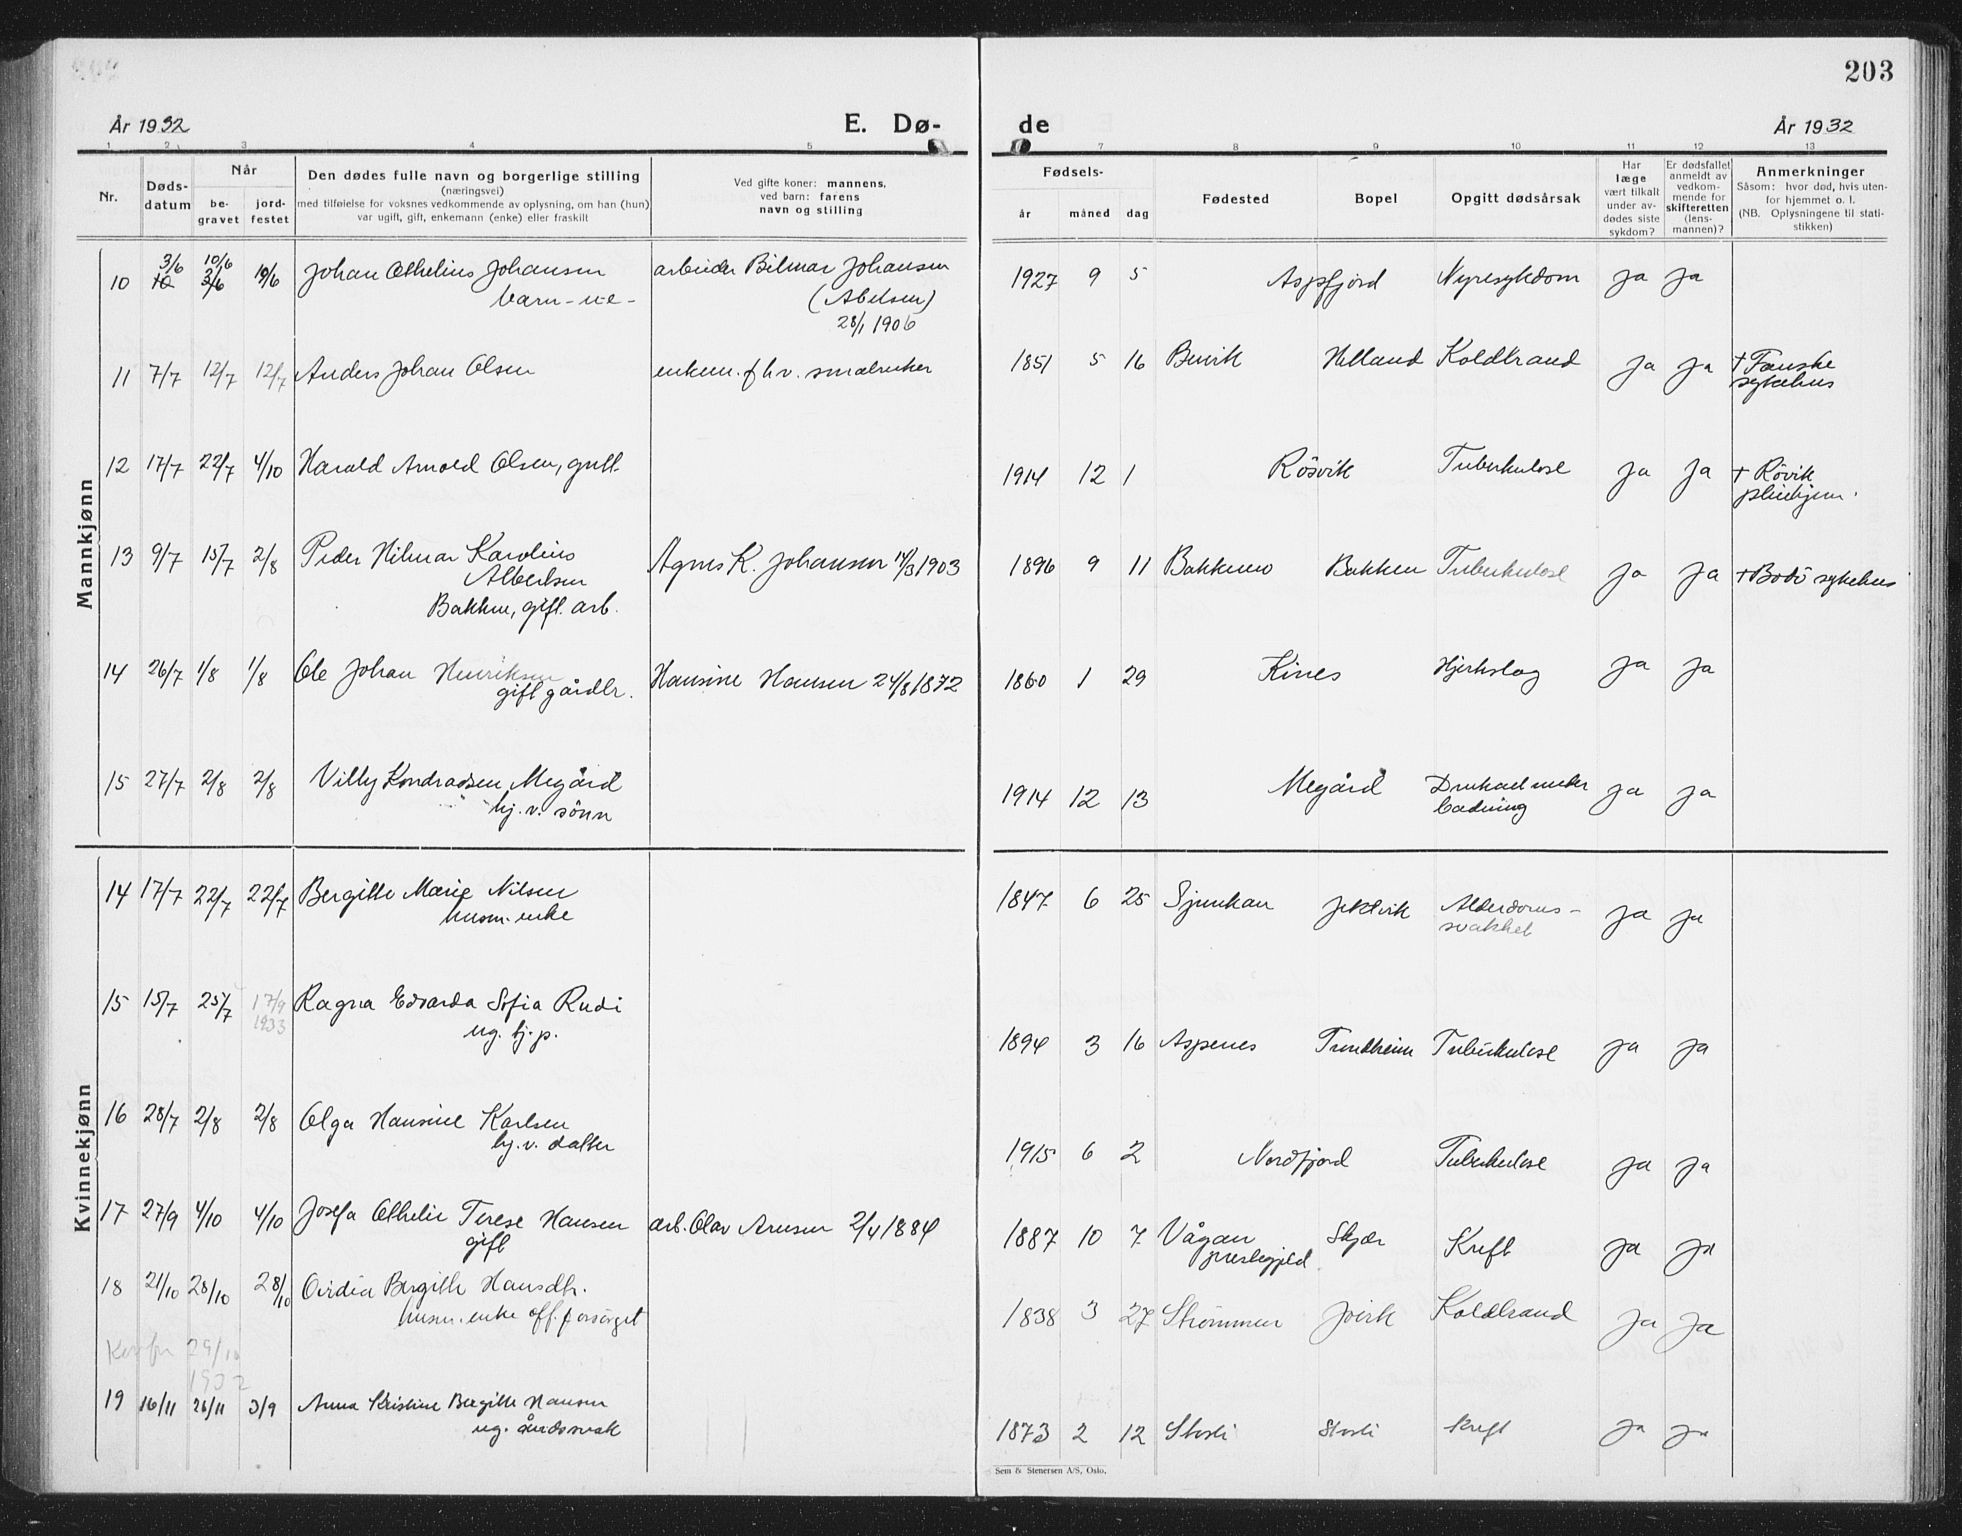 203
År 1932
E. Dø-
de
År 1932
1 2 3 4 5 7 8 9 10 11 12 13
Nr.
Døds-
datum
Når
be-
gravet
jord-
festet
Den dødes fulle navn og borgerlige stilling
(næringsvei)
med tilføielse for voksnes vedkommende av oplysning, om han (hun)
var ugift, gift, enkemann (enke) eller fraskilt
Ved gifte koner: mannens,
ved barn: farens
navn og stilling
Fødsels-
år måned dag
Fødested
Bopel
Opgitt dødsårsak
Har
læge
vært tilkalt
under av-
dødes siste
sykdom?
Er dødsfallet
anmeldt av
vedkom-
mende for
skifteretten
(lens-
mannen)?
Anmerkninger
Såsom: hvor død, hvis uten-
for hjemmet o. l.
(NB. Oplysningene til stati-
stikken)
Mannkjønn
3/6 10/6
10 10 3/6 19/6 Johan Othelius Johansen arbeider Bilmar Johansen 1927 9 5 Aspfjord Nyresykdom ja ja
barn-u e- (Abelsen)
28/1 1906
11 7/7 12/7 12/7 Anders Johan Olsen enkem. fhv. 1851 5 16 Helland Koldbrand ja ja + Fauske
sykehus
12 17/7 22/7 4/10 Harald Arnold Olsen, gutt 1914 12 1 Røsvik Tuberkulose ja ja + Røvik
pleiehjem.
13 9/7 15/7 2/8 Peder Hilmar Karolius Agnes K. Johansen 14/3 1903 1896 9 11 Bakken Tuberkulose ja ja + Bodö sykehus
Albertsen
Bakken, gift. arb.
14 26/7 1/8 1/8 Ole Johan Henriksen Hansine Hansen 24/8 1872 1860 1 29 Kines Hjertslag ja ja
gift gårdbr.
15 27/7 2/8 2/8 Villy Kondradsen Megård 1914 12 13 Megård Druknet under ja ja
hj. v. sönn badning
Kvinnekjønn
14 17/7 22/7 22/7 Bergitte Marie Nilsen 1847 6 25 Sjunkan Jektvik Alderdoms- ja ja
husm. enke svakhet
15 15/7 25/7 17/9 Ragna Edvarda Sofia Rudi 1894 3 16 Aspenes Trondheim Tuberkulose ja ja
1933 ug. hj. p.
16 28/7 2/8 2/8 Olga Hansine Karlsen 1915 6 2 Nordfjord Tuberkulose ja ja
hj. v. datter
17 27/9 4/10 4/10 Josefa Othelie Terese Hansen arb. Olav Arnsen 2/4 1884 1887 10 7 Vågan Skjær Kreft ja ja
gift prestegjeld
18 21/10 28/10 28/10 Ovidia Bergitte Hansdtr. 1838 3 27 Strømmen Koldbrand ja ja
husm. enke off. forsörget
29/10
1932
19 16/11 26/11 3/9 Anna Kristine Bergitte Hansen 1873 2 12 Storli Storli Kreft ja ja
ug. åndssvak
Sem & Stenersen A/S, Oslo.